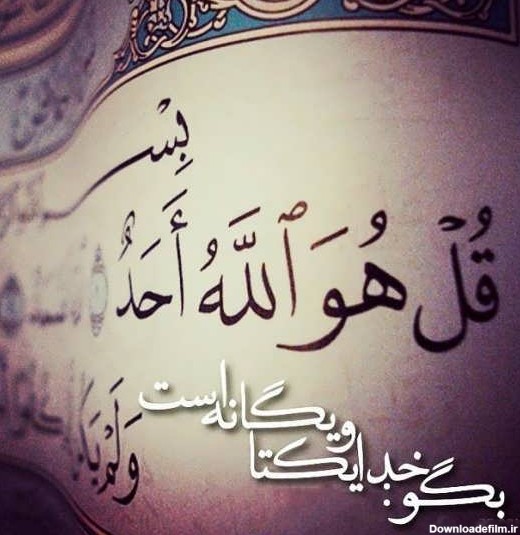 بِسْ
قُلْ هُوَ ٱللَّهُ أَحَدٌ ۝١
وَلَمْ يَكُ
بگو: خدا یکتا
و یگانه است
Downloadefilm.ir